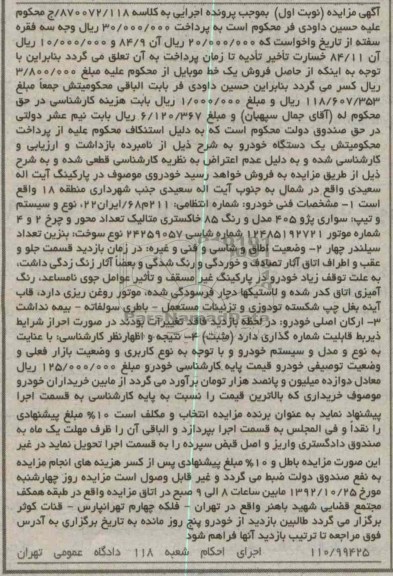 آگهی مزایده (نوبت اول) بموجب پرونده اجرایی به کلاسه ۸۷۰۰۷۲/۱۱۸/ج محکوم
علیه حسین داودی فر محکوم است به پرداخت ۳۰/۰۰۰/۰۰۰ ریال وجه سه فقره
سفته از تاریخ واخواست که ۲۰/۰۰۰/۰۰۰ ریال آن ۸۴/۹ و ۱۰/۰۰۰/۰۰۰ ریال
آن ۸۴/۱۱ خسارت تأخیر تأدیه تا زمان پرداخت به آن تعلق می گردد بنابراین با
توجه به اینکه از حاصل فروش یک خط موبایل از محکوم علیه مبلغ ۳/۸۰۰/۰۰۰
ریال کسر می گردد بنابراین حسین داودی فر بابت الباقی محکومیتش جمعاً مبلغ
۱۱۸/۶۰۷/۳۵۳ ریال و مبلغ ۱/۰۰۰/۰۰۰ ریال بابت هزینه کارشناسی در حق
محکوم له (آقای جمال سپهیان) و مبلغ ۶/۱۲۰/۳۶۷ ریال بابت نیم عشر دولتی
در حق صندوق دولت محکوم است که به دلیل استنکاف محکوم علیه از پرداخت
محکومیتش یک دستگاه خودرو به شرح ذیل از نامبرده بازداشت و ارزیابی و
کارشناسی شده و به دلیل عدم اعتراض به نظریه کارشناسی قطعی شده و به شرح
ذیل از طریق مزایده به فروش خواهد رسید خودروی موصوف در پارکینگ آیت اله
سعیدی واقع در شمال به جنوب آیت اله سعیدی جنب شهرداری منطقه ۱۸ واقع
است ۱- مشخصات فنی خودرو: شماره انتظامی: ۲۱۱م۶۸/ایران۲۲، نوع و سیستم
و تیپ: سواری پژو ۴۰۵ مدل و رنگ ۸۵ خاکستری متالیک تعداد محور و چرخ ۲ و ۴
شماره موتور ۱۲۴۸۵۱۹۲۷۲۱ شماره شاسی ۲۴۲۵۹۰۵۷ نوع سوخت: بنزین تعداد
سیلندر چهار ۲- وضعیت اطاق و شاسی و فنی و غیره: در زمان بازدید قسمت جلو و
عقب و اطراف اتاق آثار تصادف و خوردگی و رنگ شدگی و بعضاً آثار زنگ زدگی داشت،
به علت توقف زیاد خودرو در پارکینگ غیر مسقف و تأثیر عوامل جوی نامساعد، رنگ
آمیزی اتاق کدر شده و لاستیکها دچار فرسودگی شده، موتور روغن ریزی دارد، قاب
آینه بغل چپ شکسته تودوزی و تزئینات مستعمل - باطری سولفاته - بیمه نداشت
۳- ارکان اصلی خودرو: در لحظه بازدید فاقد تغییرات بودند در صورت احراز شرایط
ذیربط قابلیت شماره گذاری دارد (مثبت) ۴- نتیجه و اظهارنظر کارشناسی: با عنایت
به نوع و مدل و سیستم خودرو و با توجه به نوع کاربری و وضعیت بازار فعلی و
وضعیت توصیفی خودرو قیمت پایه کارشناسی خودرو مبلغ ۱۲۵/۰۰۰/۰۰۰ ریال
معادل دوازده میلیون و پانصد هزار تومان برآورد می گردد از مابین خریداران خودرو
موصوف خریداری که بالاترین قیمت را نسبت به پایه کارشناسی به قسمت اجرا
پیشنهاد نماید به عنوان برنده مزایده انتخاب و مکلف است ۱۰% مبلغ پیشنهادی
را نقداً و فی المجلس به قسمت اجرا بپردازد و الباقی آن را ظرف مهلت یک ماه به
صندوق دادگستری واریز و اصل قبض سپرده را به قسمت اجرا تحویل نماید در غیر
این صورت مزایده باطل و ۱۰% مبلغ پیشنهادی پس از کسر هزینه های انجام مزایده
به نفع صندوق دولت ضبط می گردد و غیر قابل وصول است مزایده روز چهارشنبه
مورخ ۱۳۹۲/۱۰/۲۵ مابین ساعات ۸ الی ۹ صبح در اتاق مزایده واقع در طبقه همکف
مجتمع قضایی شهید باهنر واقع در تهران - فلکه چهارم تهرانپارس - قنات کوثر
برگزار می گردد طالبین بازدید از خودرو پنج روز مانده به تاریخ برگزاری به آدرس
فوق مراجعه تا ترتیب بازدید آنها فراهم شود
۱۱۰/۹۹۴۲۵ اجرای احکام شعبه ۱۱۸ دادگاه عمومی تهران